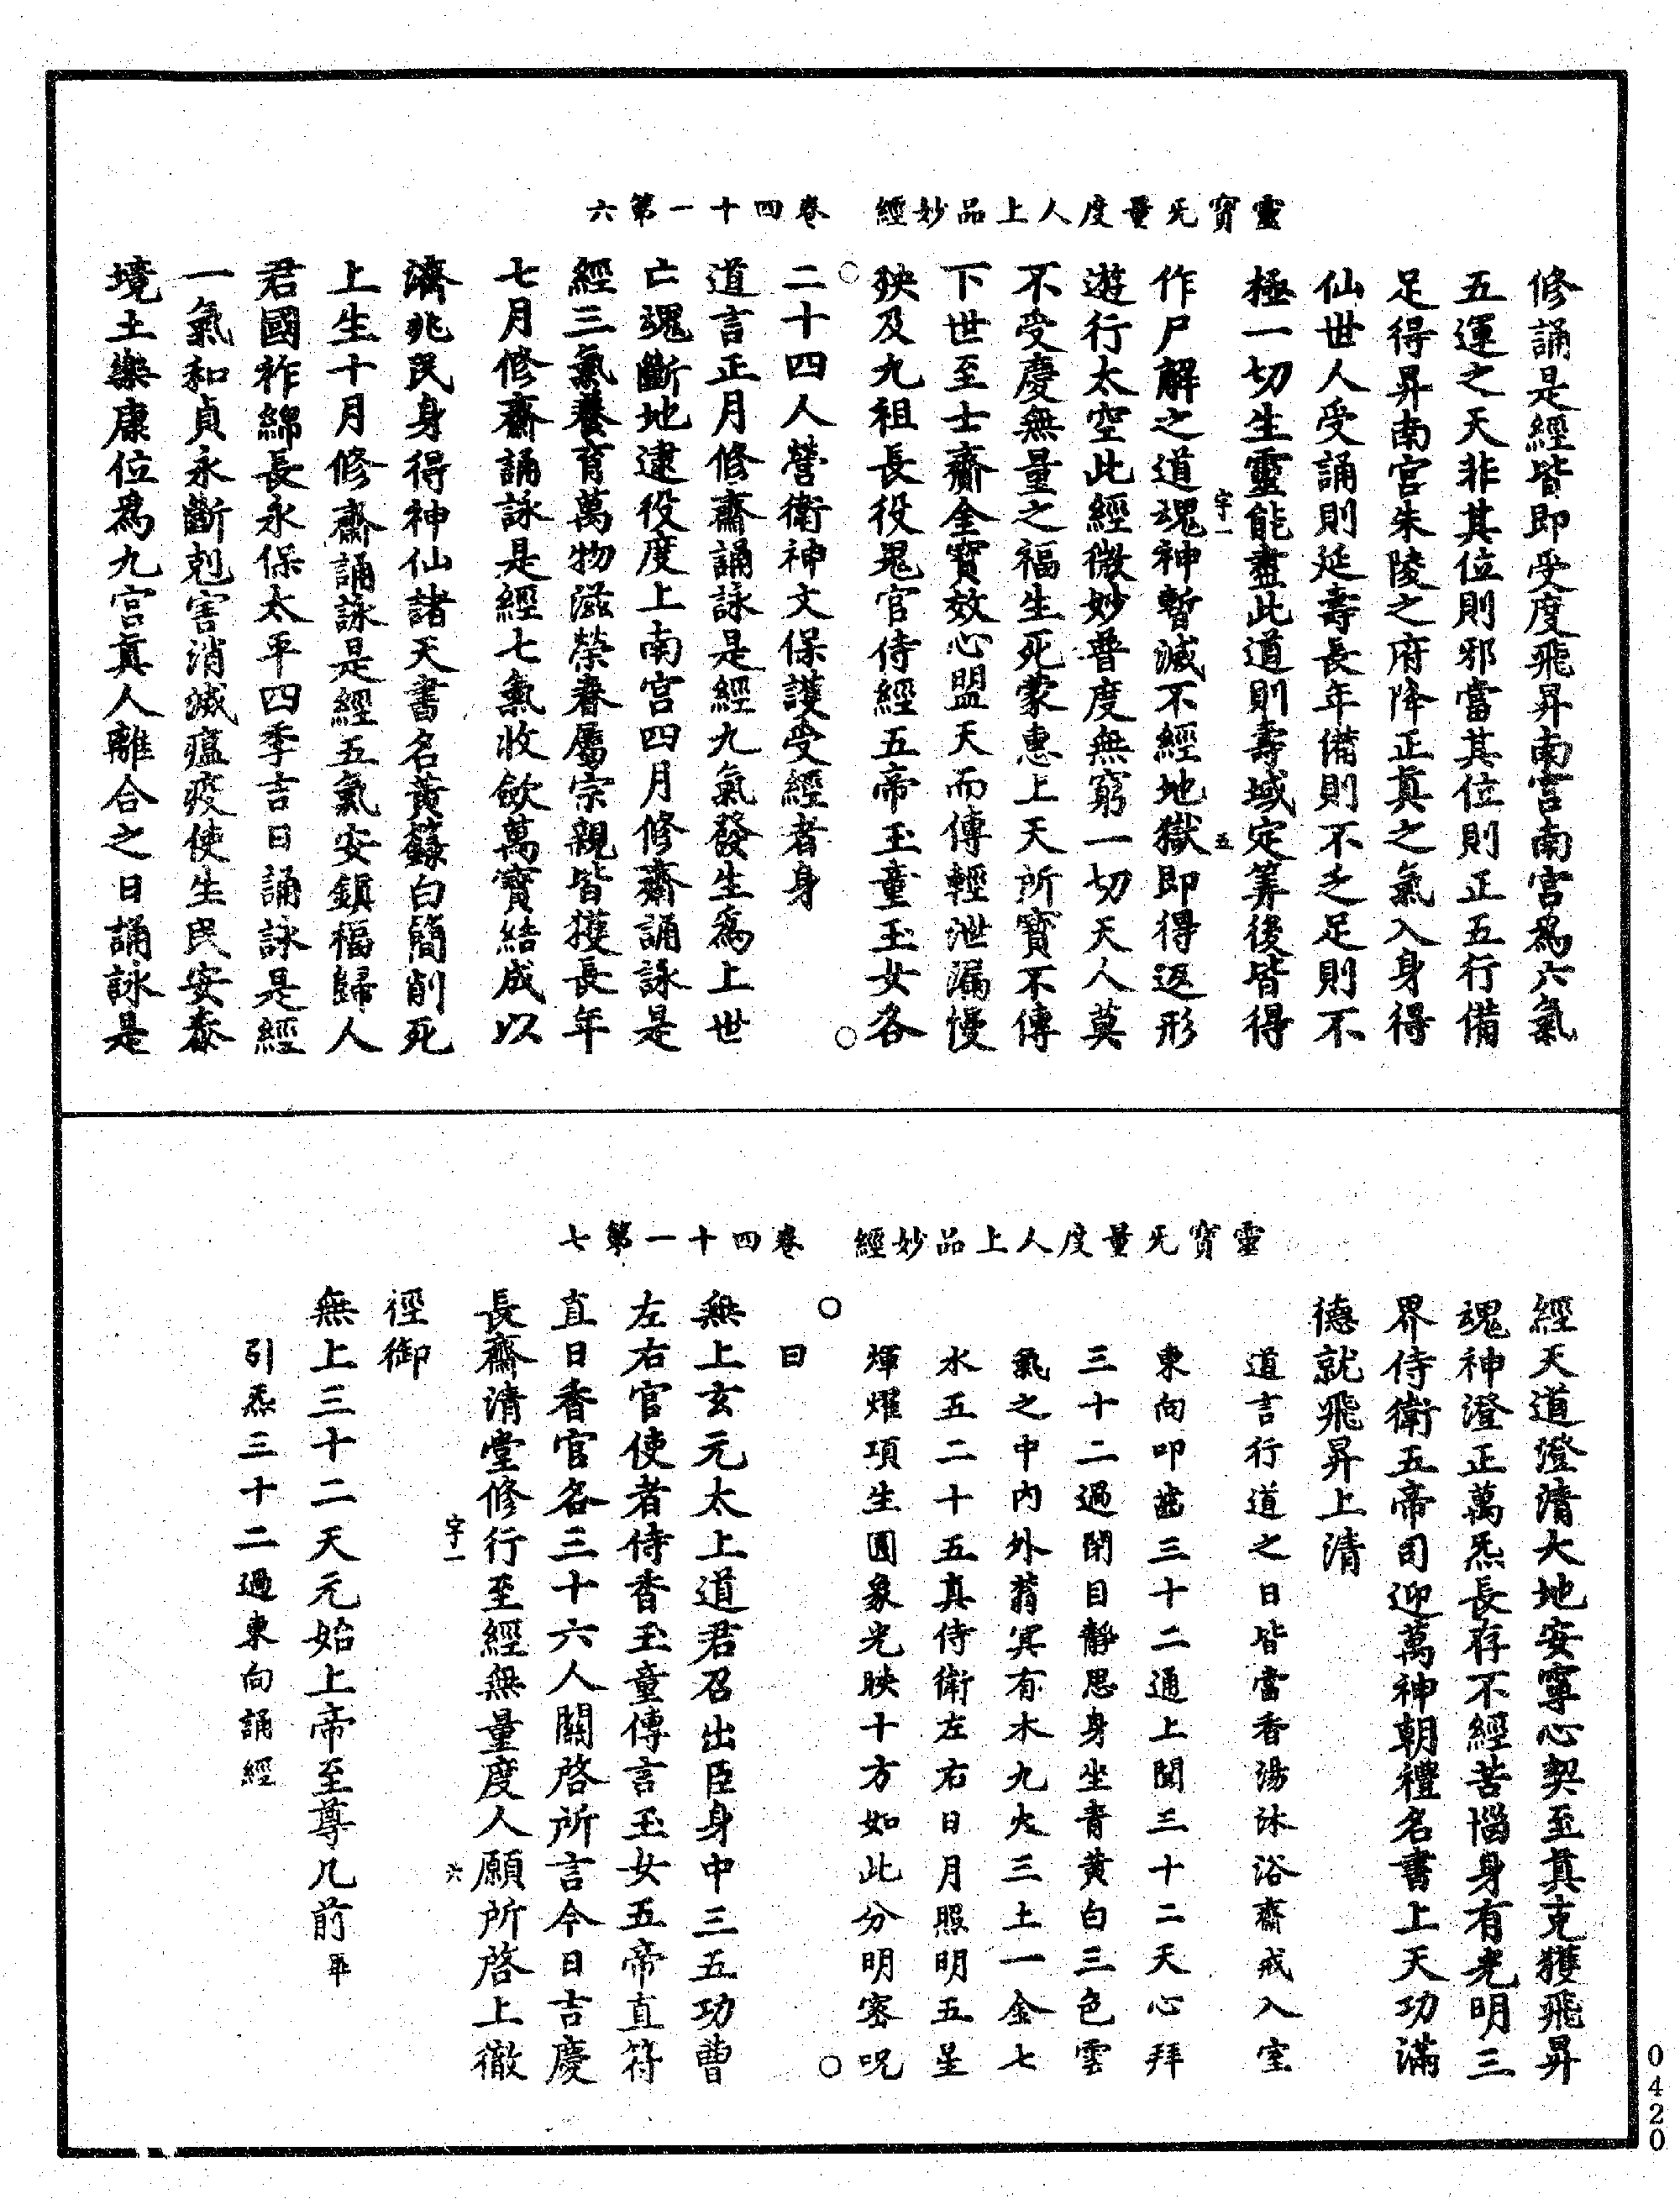 靈寳无量度人上品妙經　卷四十一第六
修誦是經皆即受度飛昇南宮南宮爲六氣
五運之天非其位則邪當其位則正五行備
足得昇南宮朱陵之府降正真之氣入身得
仙世人受誦則延壽長年備則不乏足則不
極一切生靈能盡此道則壽域定筭後皆得
字一　五
作尸解之道魂神暫滅不經地獄即得返形
遊行太空此經微妙普度無窮一切天人莫
不受慶無量之福生死蒙惠上天所寶不傳
下世至士齎金寶效心盟天而傳輕泄漏慢
殃及九祖長役鬼官侍經五帝玉童玉女各
二十四人營衛神文保護受經者身
道言正月修齋誦詠是經九氣發生爲上世
亡魂斷地逮役度上南宮四月修齋誦詠是
經三氣養育萬物滋榮眷屬宗親皆獲長年
七月修齋誦詠是經七氣收斂萬寶結成以
濟兆民身得神仙諸天書名黃籙白簡削死
上生十月修齋誦詠是經五氣安鎮福歸人
君國祚綿長永保太平四季吉日誦詠是經
一氣和貞永斷剋害消滅瘟疫使生民安泰
境土樂康位爲九宮真人離合之日誦詠是
靈寳无量度人上品妙經　卷四十一第七
經天道澄清大地安寧心契至真克獲飛昇
魂神澄正萬炁長存不經苦惱身有光明三
界侍衛五帝司迎萬神朝禮名書上天功滿
德就飛昇上清
道言行道之日皆當香湯沐浴齋戒入室
東向叩齒三十二通上聞三十二天心拜
三十二過閉目靜思身坐青黃白三色雲
氣之中內外蓊冥有木九火三土一金七
水五二十五真侍衛左右日月照明五星
煇燿項生圓象光映十方如此分明密呪
曰
無上玄元太上道君召出臣身中三五功曹
左右官使者侍香玉童傳言玉女五帝直符
直日香官各三十六人關啓所言今日吉慶
長齋清堂修行至經無量度人願所啓上徹
字一　六
徑御
無上三十二天元始上帝至尊几前畢
引炁三十二過東向誦經
0420